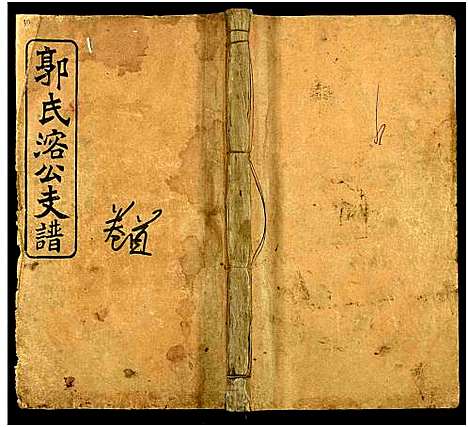 郭氏溶公支譜
卷首